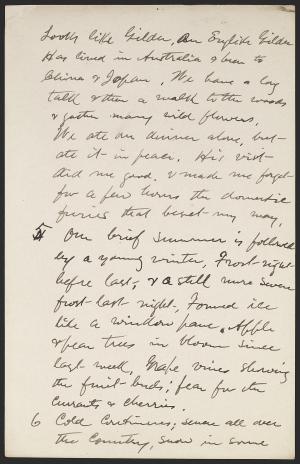 Looks like Gilder, An English Gilder
Has lived in Australia & been to
China & Japan. We have a long
talk & then a walk to the woods
& gather many wild flowers.
We ate our dinner alone, but
ate it in peace. His visit
did me good, & made me forget
for a few hours the domestic
furies that beset my way.
5 Our brief summer is followed
by a young winter, Frost night
before last, & a still more severe
frost last night, Formed ice
like a window pane. Apple
& pear trees in bloom since
last week, Grape vines showing
the fruit-buds; fear for the
currants & cherries.
6 Cold Continues; severe all over
the Country, snow in some